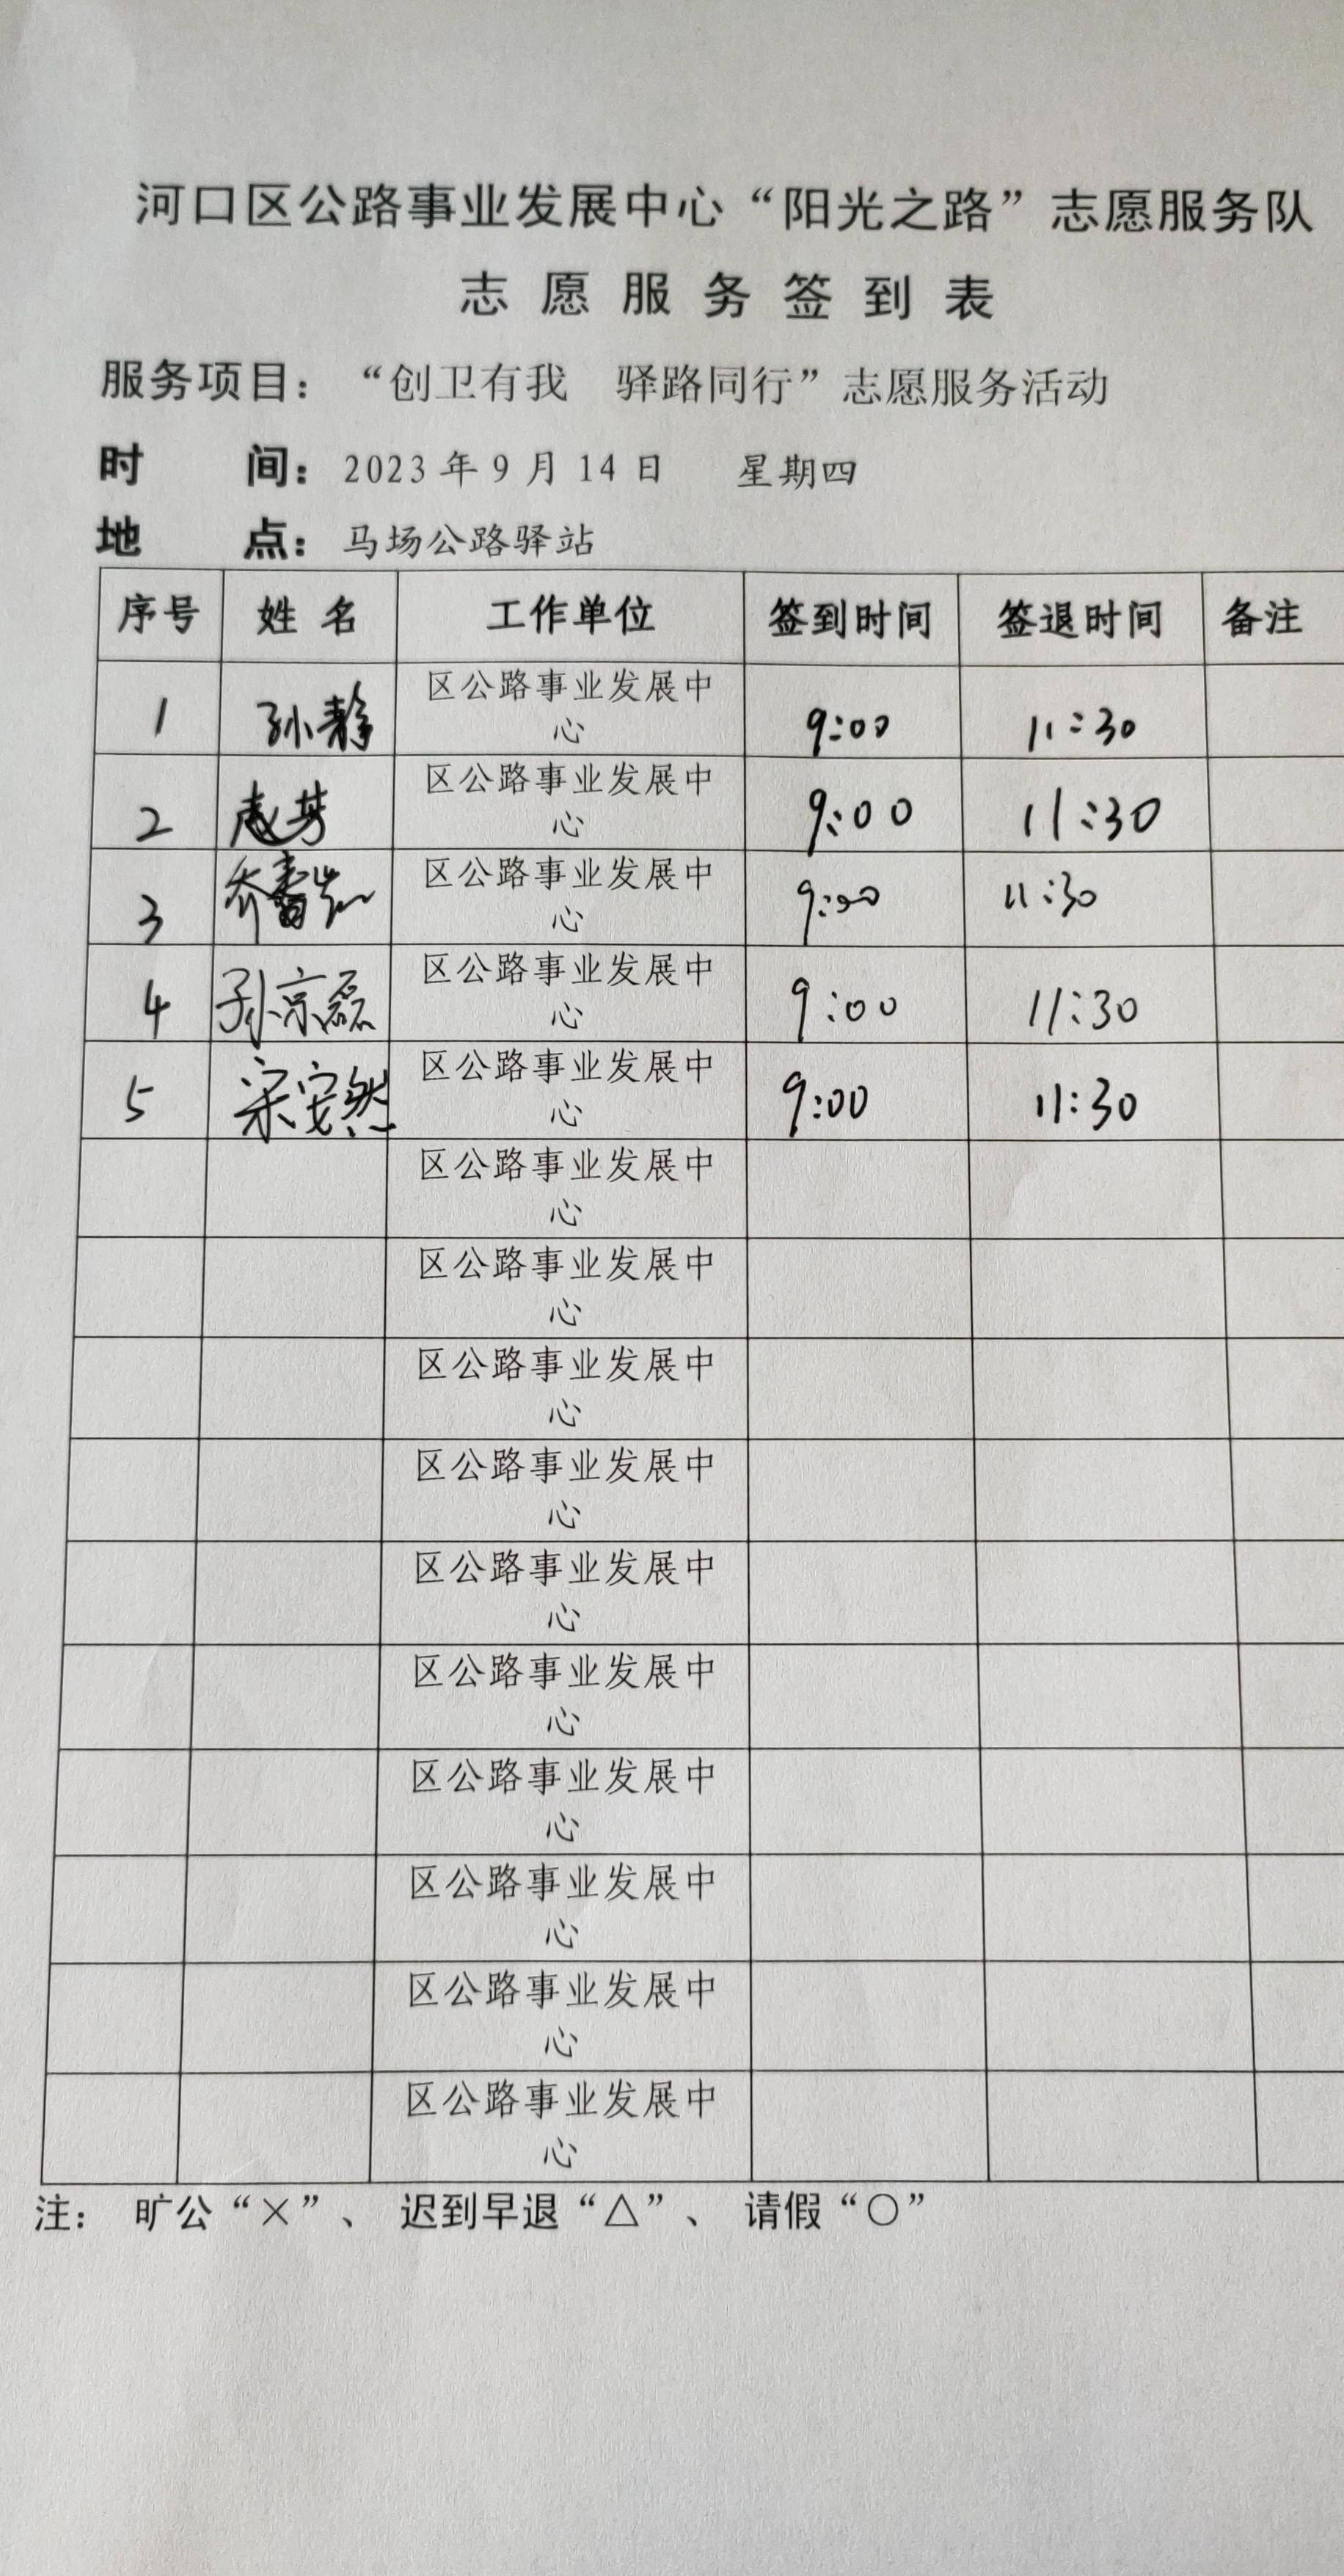 河口区公路事业发展中心“阳光之路”志愿服务队
志愿服务签到表
服务项目：“创卫有我　驿路同行”志愿服务活动
时　　间：2023年9月14日　星期四
地　　点：马场公路驿站
序号 姓名 工作单位 签到时间 签退时间 备注
1 孙静 区公路事业发展中 9:00 11:30
心
2 区公路事业发展中 9:00 11:30
心
3 区公路事业发展中 9:00 11:30
心
4 孙京磊 区公路事业发展中 9:00 11:30
心
5 宋安然 区公路事业发展中 9:00 11:30
心
区公路事业发展中
心
区公路事业发展中
心
区公路事业发展中
心
区公路事业发展中
心
区公路事业发展中
心
区公路事业发展中
心
区公路事业发展中
心
区公路事业发展中
心
区公路事业发展中
心
区公路事业发展中
心
注：　旷公“×”、　迟到早退“△”、　请假“○”